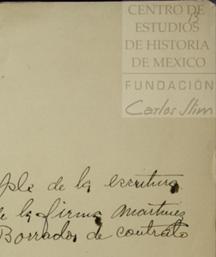 CENTRO DE
ESTUDIOS
DE HISTORIA
DE MEXICO
FUNDACIÓN
Carlos Slim
de la escritura
de la firma Martinez
Borrador de contrato